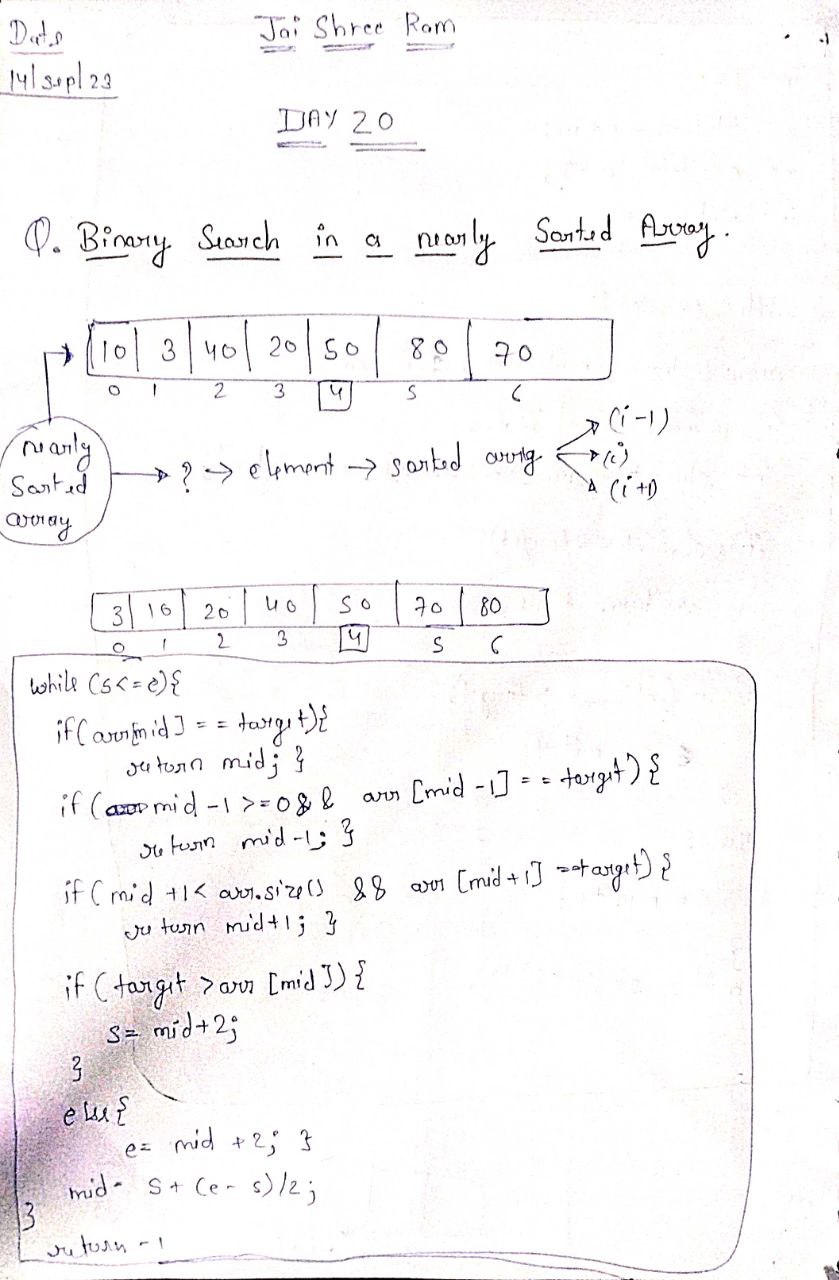 Date
14/sep/23
Jai Shree Ram
DAY 20
Q. Binary Search in a nearly Sorted Array.
10 3 40 20 50 80 70
0 1 2 3 4 5 6
nearly
Sorted
array
? → element → sorted
(i-1)
(i)
(i+1)
3 10 20 40 50 70 80
0 1 2 3 4 5 6
while (s<=e){
if(arr[mid] == target){
return mid; }
if (mid -1 >=0 && arr [mid -1] == target) {
return mid-1; }
if (mid +1< arr.size() && arr [mid+1] ==target) {
return mid+1; }
if (target >arr [mid]) {
s= mid+2;
}
else{
e= mid +2; }
mid= s+ (e- s)/2;
}
return -1